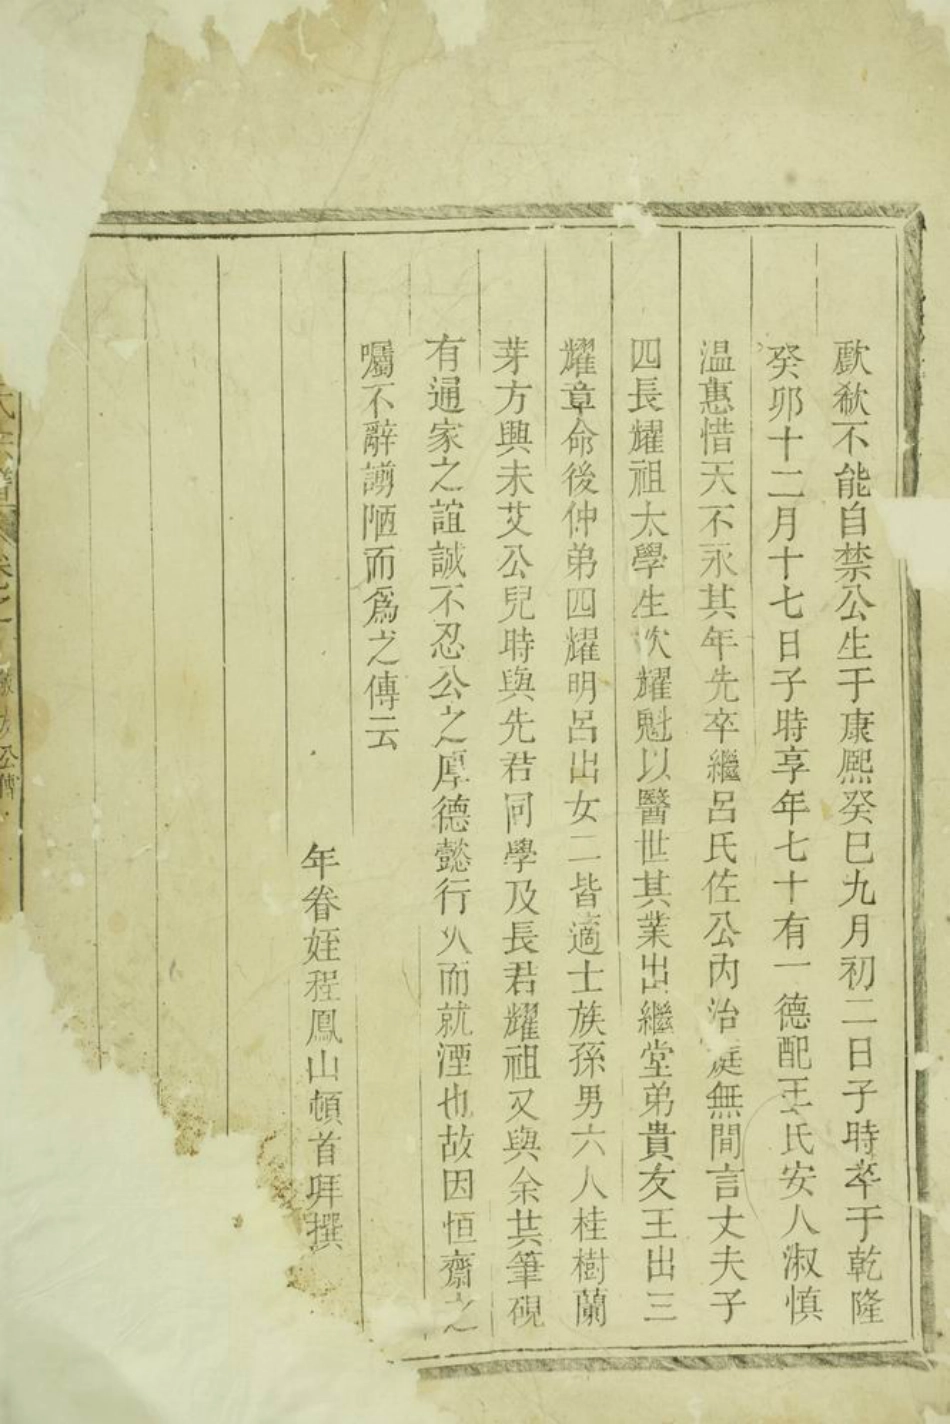 歔欷不能自禁公生于康熈癸巳九月初二日子時卒于乾隆
癸卯十二月十七日子時享年七十有一德配王氏安人淑慎
温惠惜天不永其年先卒繼呂氏佐公内治庭無間言丈夫子
四長耀祖太學生次耀魁以醫世其業出繼堂弟貴友王出三
耀章命後仲弟四耀明呂出女二皆適士族孫男六人桂樹蘭
芽方興未艾公兒時與先君同學及長君耀祖又與余共筆硯
有通家之誼誠不忍公之厚德懿行久而就湮也故因恒齋之
囑不辭譾陋而爲之傳云
年眷姪程鳳山頓首拜撰
氏宗譜
卷之
公傳